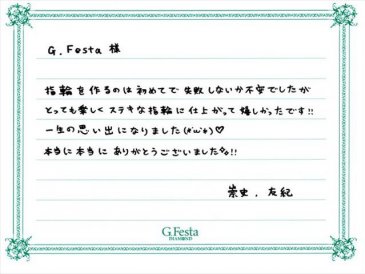 G.Festa 様
指輪を作るのは初めてで失敗しないか不安でしたが
とっても楽しくステキな指輪に仕上がって嬉しかったです!!
一生の思い出になりました(*'ω'*)♡
本当に本当にありがとうございました!!
崇史, 友紀
G.Festa
DIAMOND